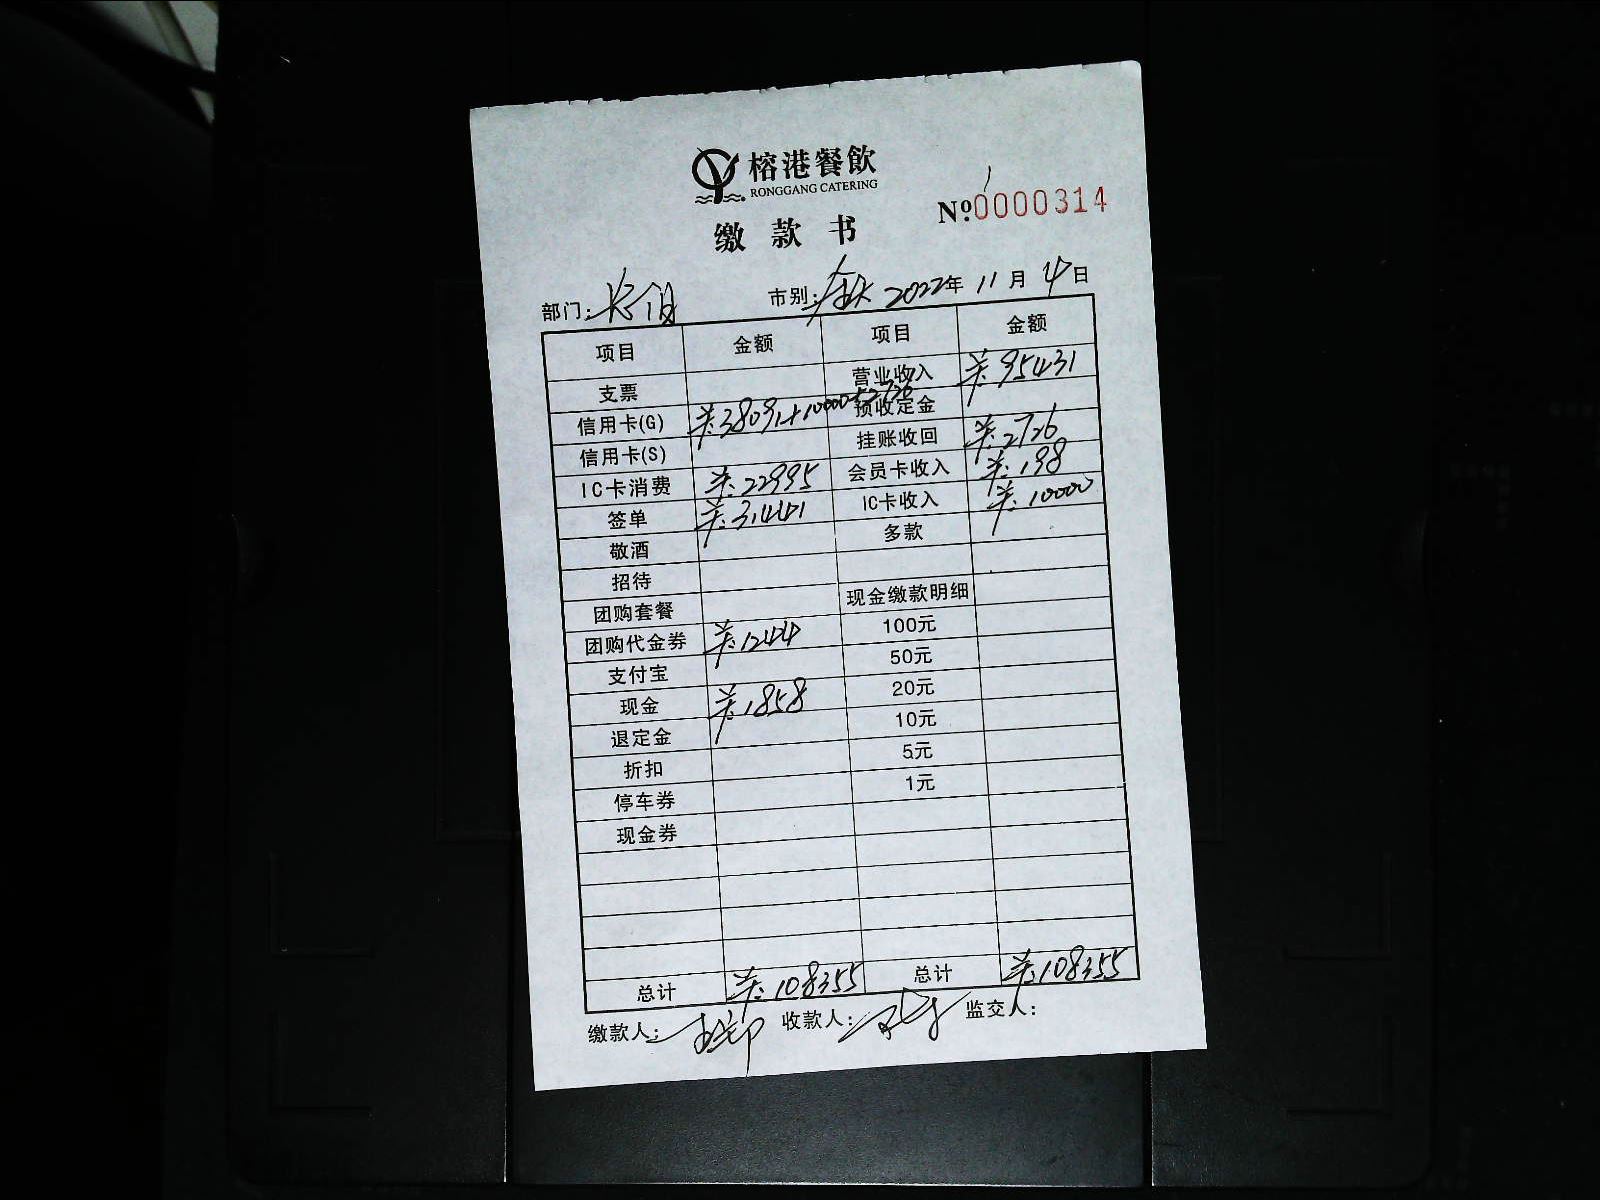 榕港餐飲
RONGGANG CATERING
缴款书
Nº.0000314
部门: 市别: 2022年 11月 4日
项目 金额 项目 金额
支票 营业收入 ¥:95431
信用卡(G) ¥:38091+10000+2726 预收定金
信用卡(S) 挂账收回 ¥:2726
IC卡消费 ¥:22995 会员卡收入 ¥:198
签单 ¥:31441 IC卡收入 ¥:10000
敬酒 多款
招待
团购套餐 现金缴款明细
团购代金券 ¥:1244 100元
支付宝 50元
现金 ¥:1858 20元
退定金 10元
折扣 5元
停车券 1元
现金券
总计 ¥:108355 总计 ¥:108355
缴款人: 收款人: 监交人: